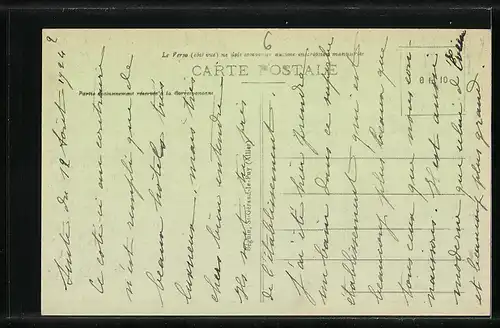 6
Le Verso (côté vue) ne doit comporter aucune inscription manuscrite
CARTE POSTALE
Partie exclusivement réservée à la Correspondance
St-Gérand-le-Puy (Allier)
Suite du 12 Août 1924 2
Ce côté ci au contraire
n'est rempli que de
beaux hotels très
luxueux, mais très
chers bien entendu
Ils sont très près
de l'établissement.
J'ai été hier prendre
un bain dans ce superbe
établissement qui est
beaucoup plus beau que
tous ceux que nous con-
naissons. Il est aussi
moderne que celui d'
et beaucoup plus grand.